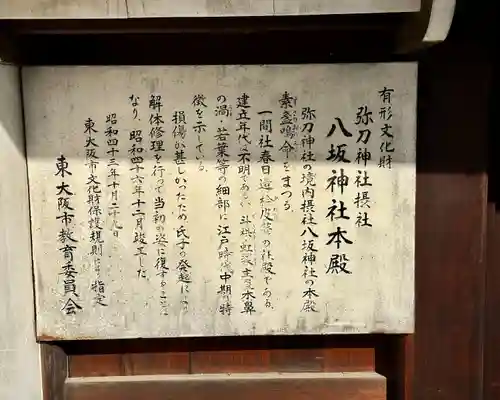 有形文化財
弥刀神社摂社
八坂神社本殿
弥刀神社の境内摂社八坂神社の本殿
素盞嗚命をまつる。
一間社春日造り桧皮葺の社殿である。
建立年代は不明であるが、斗栱、虹梁、木鼻
の渦、若葉等の細部に江戸時代中期の特
徴を示している。
損傷が甚しかったため氏子の発起により
解体修理を行って当初の姿に復することに
なり、昭和四十六年十二月竣工した。
昭和四十三年十月二十九日
東大阪市文化財保護規則により指定
東大阪市教育委員会